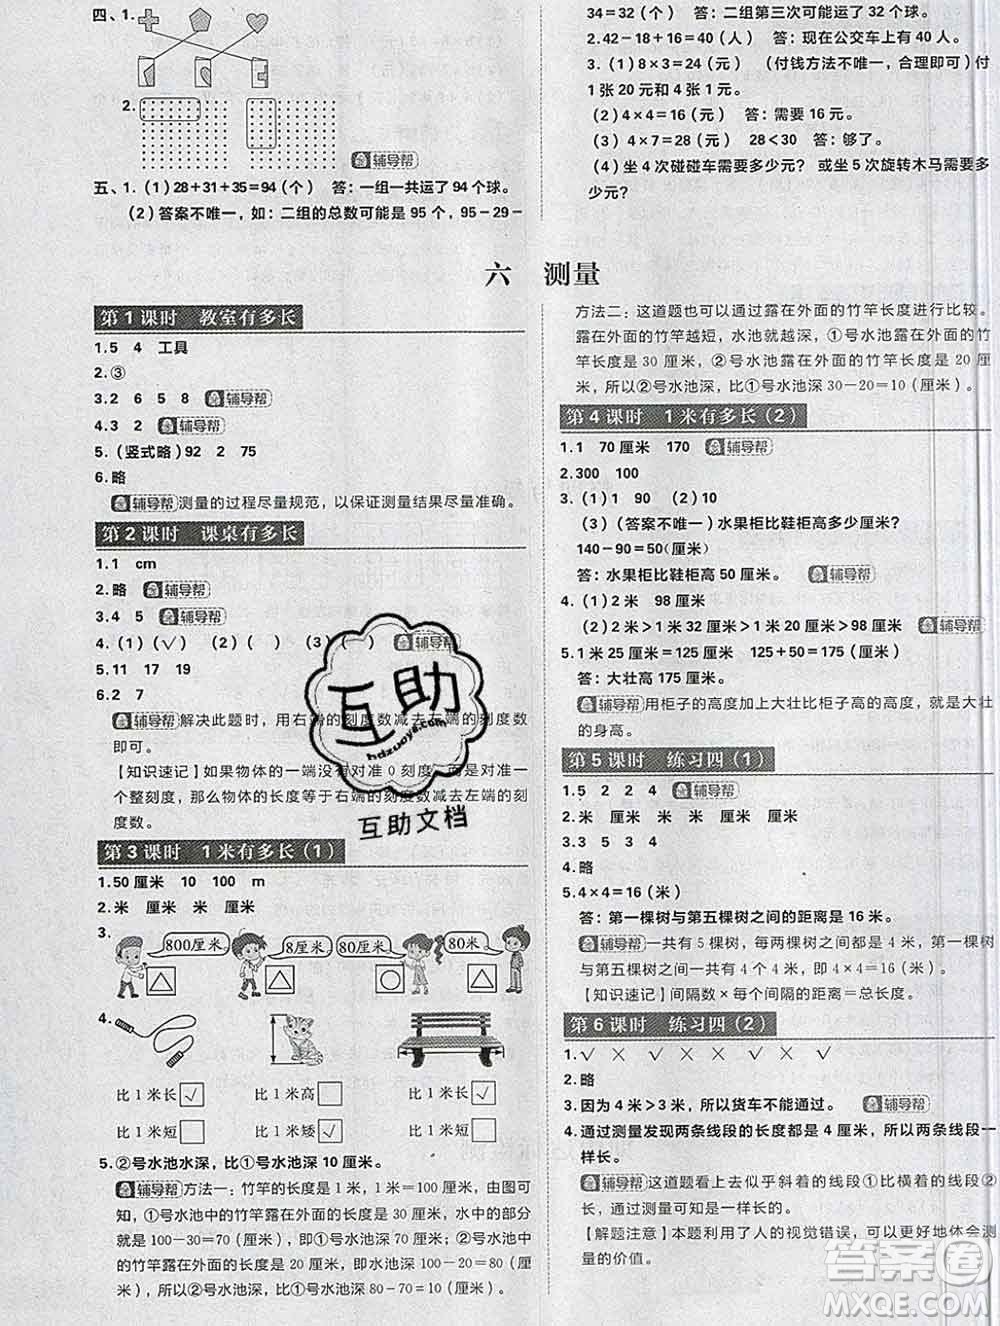 四、1.
2.
辅导帮
五、1.（1）28+31+35=94（个） 答：一组一共运了 94 个球。
（2）答案不唯一，如：二组的总数可能是 95 个，95-29-
34=32（个） 答：二组第三次可能运了 32 个球。
2.42-18+16=40（人） 答：现在公交车上有 40 人。
3.（1）8×3=24（元）（付钱方法不唯一，合理即可）付
1 张 20 元和 4 张 1 元。
（2）4×4=16（元） 答：需要 16 元。
（3）4×7=28（元） 28<30 答：够了。
（4）坐 4 次碰碰车需要多少元？ 或坐 5 次旋转木马需要多
少元？
六 测量
第 1 课时 教室有多长
1.5 4 工具
2.③
3.2 6 5 8 辅导帮
4.3 2 辅导帮
5.（竖式略）92 2 75
6.略
辅导帮 测量的过程尽量规范，以保证测量结果尽量准确。
第 2 课时 课桌有多长
1.1 cm
2.略 辅导帮
3.4 5 辅导帮
4.（1）（√） （2）（ ） （3）（ ） 辅导帮
5.11 17 19
6.2 7
辅导帮 解决此题时，用右端的刻度数减去左端的刻度数
即可。
【知识速记】如果物体的一端没有对准 0 刻度，而是对准一
个整刻度，那么物体的长度等于右端的刻度数减去左端的刻
度数。
第 3 课时 1 米有多长（1）
1.50 厘米 10 100 m
2.米 厘米 米 厘米
3.
800厘米 8厘米 80厘米 80米
△ △ ○ △
4.
比 1 米长 √ 比 1 米高 比 1 米长 √
比 1 米短 比 1 米矮 √ 比 1 米短
5.②号水池水深，比①号水池深 10 厘米。
辅导帮 方法一：竹竿的长度是 1 米，1 米=100 厘米，由图可
知，①号水池的竹竿露在外面的长度是 30 厘米，水中的部分
就是 100-30=70（厘米），即①号水池深 70 厘米；②号水池中
的竹竿露在外面的长度是 20 厘米，即水池深 100-20=80（厘
米），所以②号水池深，比①号水池深 80-70=10（厘米）。
方法二：这道题也可以通过露在外面的竹竿长度进行比较。
露在外面的竹竿越短，水池就越深，①号水池露在外面的竹
竿长度是 30 厘米，②号水池露在外面的竹竿长度是 20 厘
米，所以②号水池深，比①号水池深 30-20=10（厘米）。
第 4 课时 1 米有多长（2）
1.1 70 厘米 170 辅导帮
2.300 100
3.（1）1 90 （2）10
（3）（答案不唯一）水果柜比鞋柜高多少厘米？
140-90=50（厘米）
答：水果柜比鞋柜高 50 厘米。 辅导帮
4.（1）2 米 98 厘米
（2）2 米>1 米 32 厘米>1 米 20 厘米>98 厘米 辅导帮
5.1 米 25 厘米=125 厘米 125+50=175（厘米）
答：大壮高 175 厘米。
辅导帮 用柜子的高度加上大壮比柜子高的高度，就是大壮
的身高。
第 5 课时 练习四（1）
1.5 2 2 4 辅导帮
2.米 厘米 米 米 厘米 厘米
3.5 3 3 4
4.略
5.4×4=16（米）
答：第一棵树与第五棵树之间的距离是 16 米。
辅导帮 一共有 5 棵树，每两棵树之间的距离都是 4 米，第一棵
与第五棵树之间一共有 4 个 4 米，即 4×4=16（米）。
【知识速记】间隔数×每个间隔的距离=总长度。
第 6 课时 练习四（2）
1.√ × × √ × √ √
2.略
3.因为 4 米>3 米，所以货车不能通过。 辅导帮
4.通过测量发现两条线段的长度都是 4 厘米，所以两条线段一
样长。
辅导帮 这道题看上去似乎斜着的线段①比横着的线段②
长，通过测量可知是一样长的。
【解题注意】本题利用了人的视觉错误，可以更好地体会测
量的价值。
互助
hdzuoye.com
互助文档
答案圈
MXQE.COM